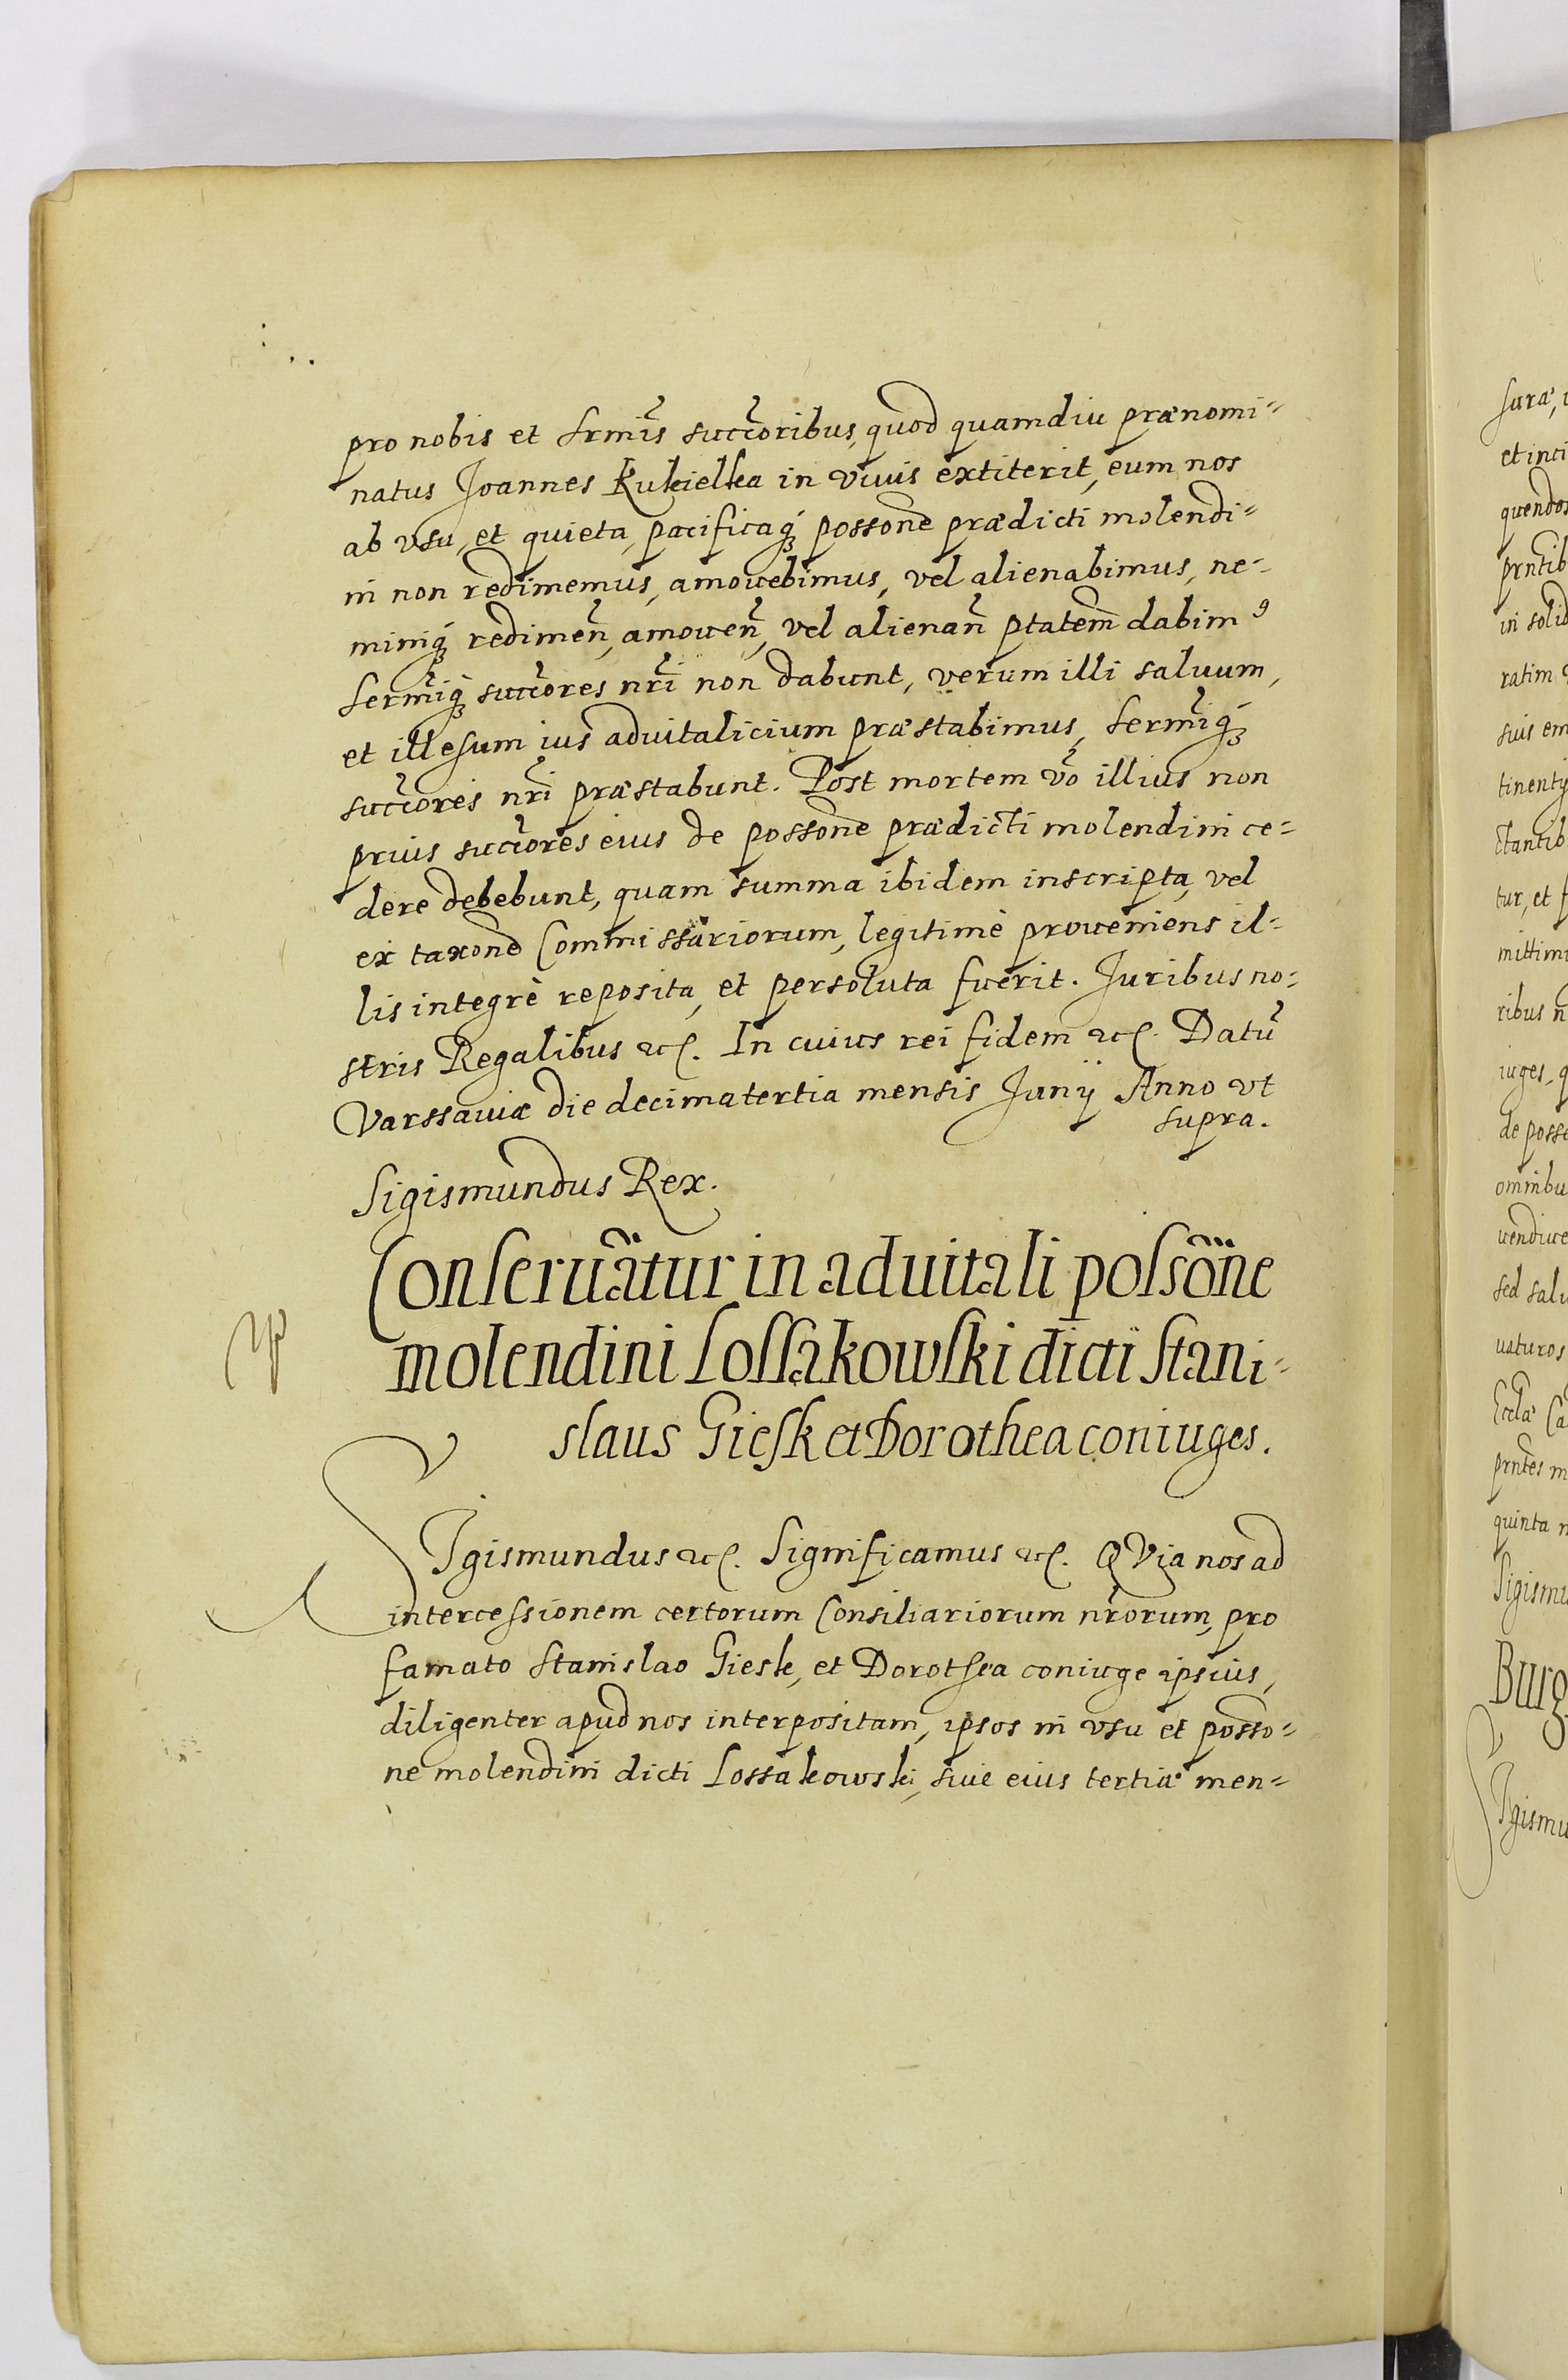 pro nobis et srmis̃ succoribus, quod quamdiu prænomi=
natus Joannes Kukielka in viuis extiterit, eum nos
ab vsu, et quieta, pacificaq́ꝫ possone prædicti molendi=
ni non redimemus, amouebimus, vel alienabimus, ne=
miniq́ꝫ redimeñ, amoueñ, vel alienañ ptatem̃ dabimꝰ
sermiq́ꝫ succores nr̃i non dabunt, verum illi saluum,
et illesum ius aduitalicium præstabimus, sermiq́ꝫ
succores nr̃i præstabunt. Post mortem vo̊ illius non
prius succores eius de possone prædicti molendini ce=
dere debebunt, quam summa ibidem inscripta, vel
ex taxone Commissariorum, legitimè proueniens il=
lis integrè reposita, et persoluta fuerit. Juribus no=
stris Regalibus etc. In cuius rei fidem etc. Datũ
Varssauiæ die decimatertia mensis Junij Anno vt
supra.
Sigismundus Rex.
Conseruãtur in aduitali possõne
molendini Lossakowski dicti Stani=
slaus Giesk et Dorothea coniuges.
SIgismundus etc. Significamus etc. QVia nos ad
intercessionem certorum Consiliariorum nr̃orum, pro
famato Stanislao Giesk, et Dorothea coniuge ipsius,
diligenter apud nos interpositam, ipsos in vsu et posso=
ne molendini dicti Lossakowski, siue eius tertiæ men=
suræ,
et inci
quendos
prntib
in solid
ratim
suis em
tinentij
ctantib
tur, et f
mittim
ribus n
iuges, q
de posse
omnibu
uendice
sed salu
uaturos
Ecclæ Ca
prntes m
quinta n
Sigismu
Burg
SIgismu